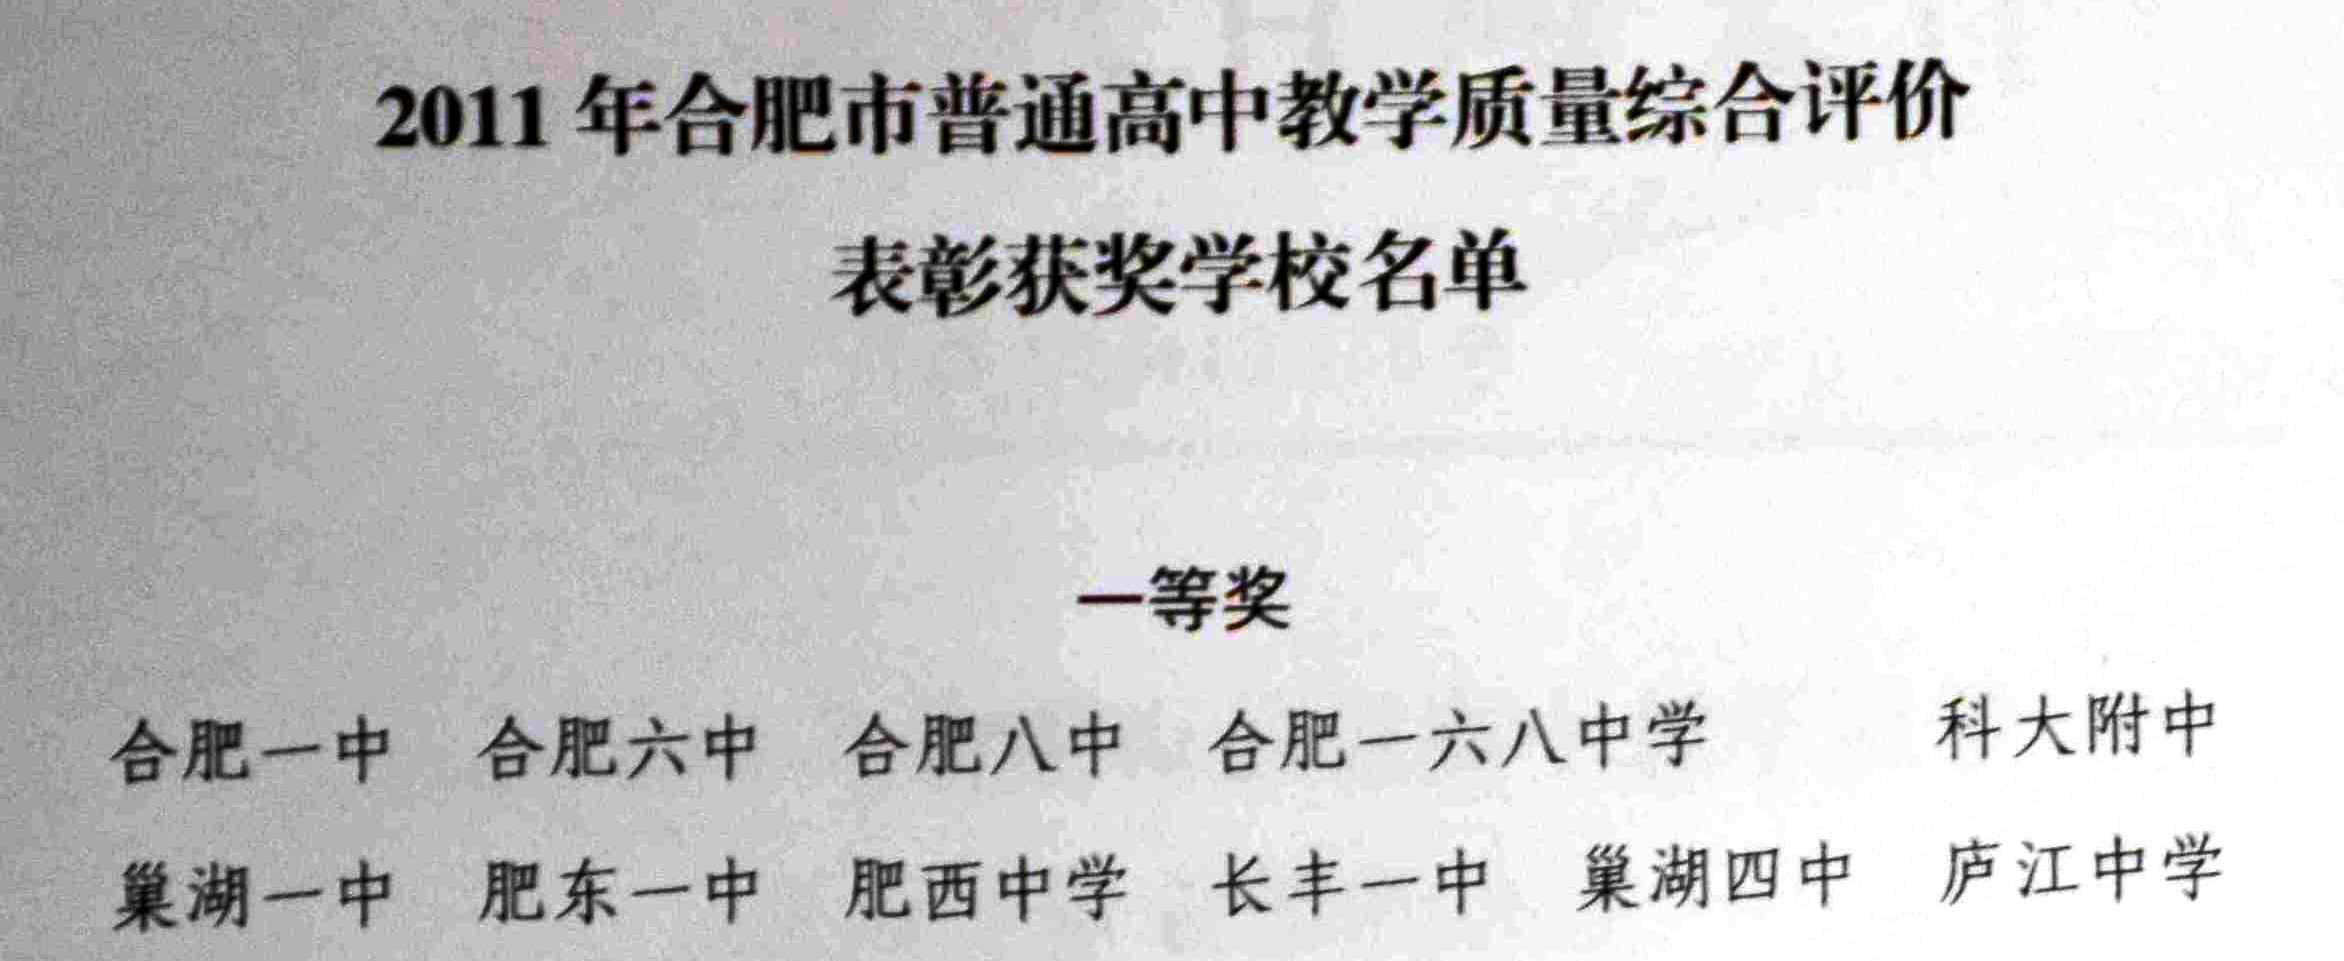 2011 年合肥市普通高中教学质量综合评价
表彰获奖学校名单
一等奖
合肥一中 合肥六中 合肥八中 合肥一六八中学 科大附中
巢湖一中 肥东一中 肥西中学 长丰一中 巢湖四中 庐江中学